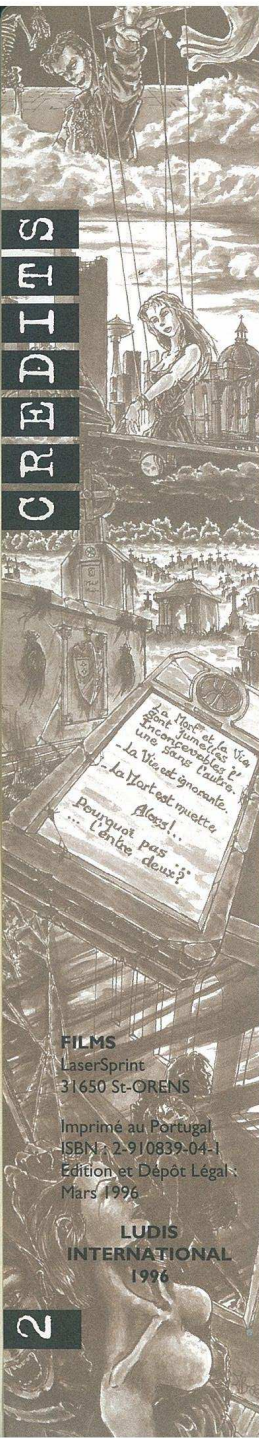 CREDITS
La Mort et la Vie
sont jumelles !
Inconcevables l'
une sans l'autre.
- La Vie est ignorante
- La Mort est muette
Alors !..
Pourquoi pas ...
... l'entre deux ?
FILMS
LaserSprint
31650 St-ORENS
Imprimé au Portugal
ISBN : 2-910839-04-1
Edition et Dépôt Légal :
Mars 1996
LUDIS
INTERNATIONAL
1996
2